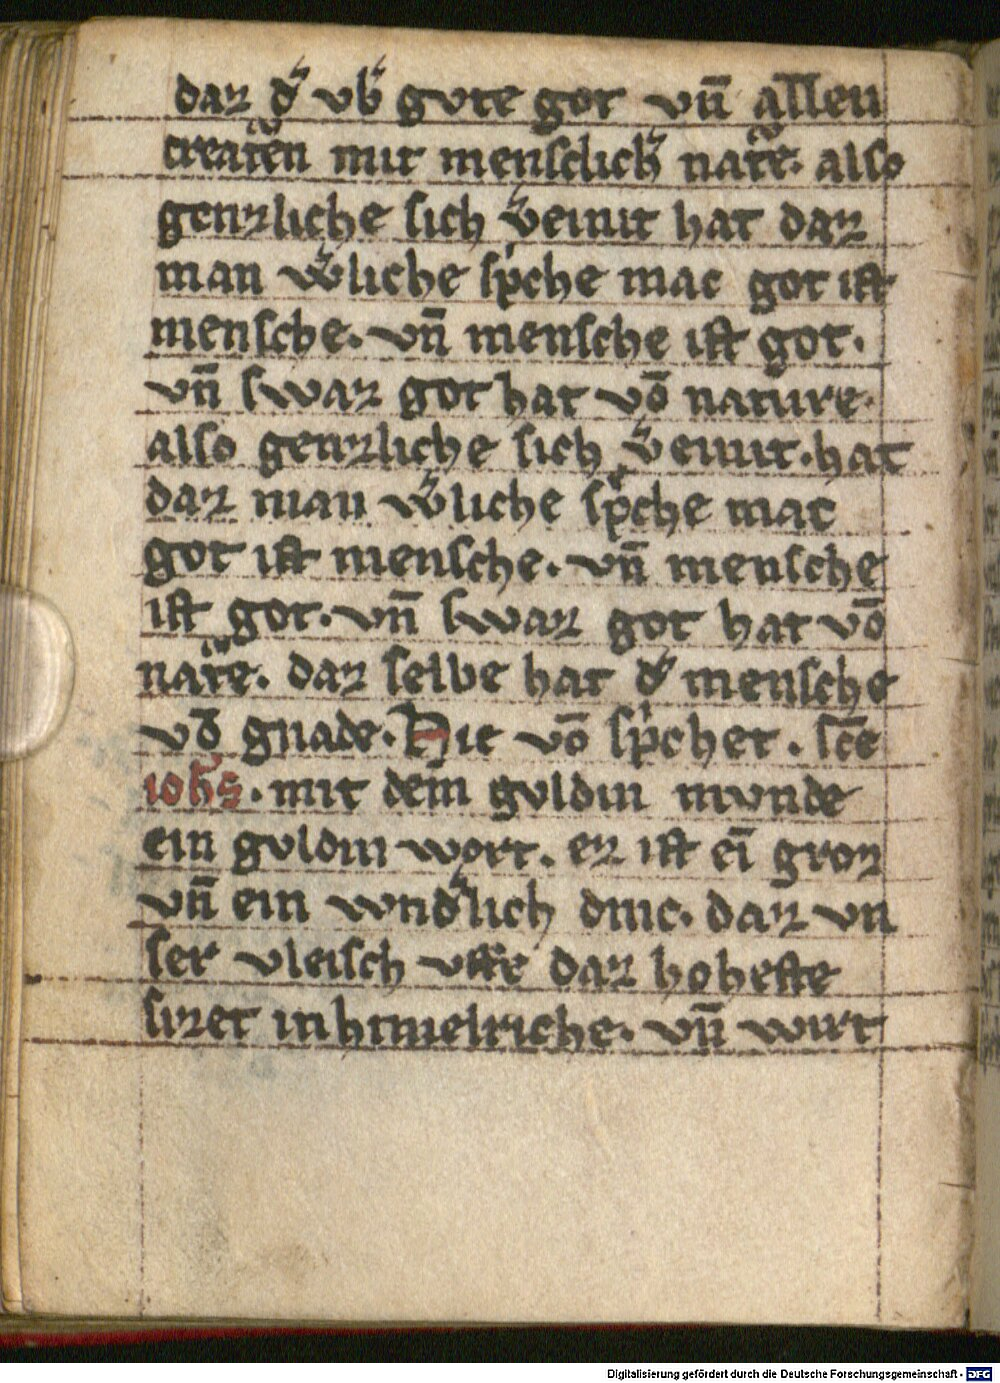 daz d͛ vb͛ gvte got vn̄ allen
creat͛en mit menslich͛ nat͛e. also
genzliche sich v͛einit hat daz
man w͛liche sp̄che mac got ist
mensche. vn̄ mensche ist got.
vn̄ swaz got hat vō nature.
also genzliche sich v͛einit. hat
daz man w͛liche sp̄che mac
got ist mensche. vn̄ mensche
ist got. vn̄ swaz got hat vō
nat͛e. daz selbe hat d͛ mensche
vō gnade. Hie vō sp̄chet. sc̄e
ioh̄s. mit dem gvldin mvnde
ein gvldin wort. ez ist eī groz
vn̄ ein wnd͛lich dinc. daz vn
ser vleisch vffe daz hoheste
sizet in himelriche. vn̄ wirt
Digitalisierung gefördert durch die Deutsche Forschungsgemeinschaft - DFG